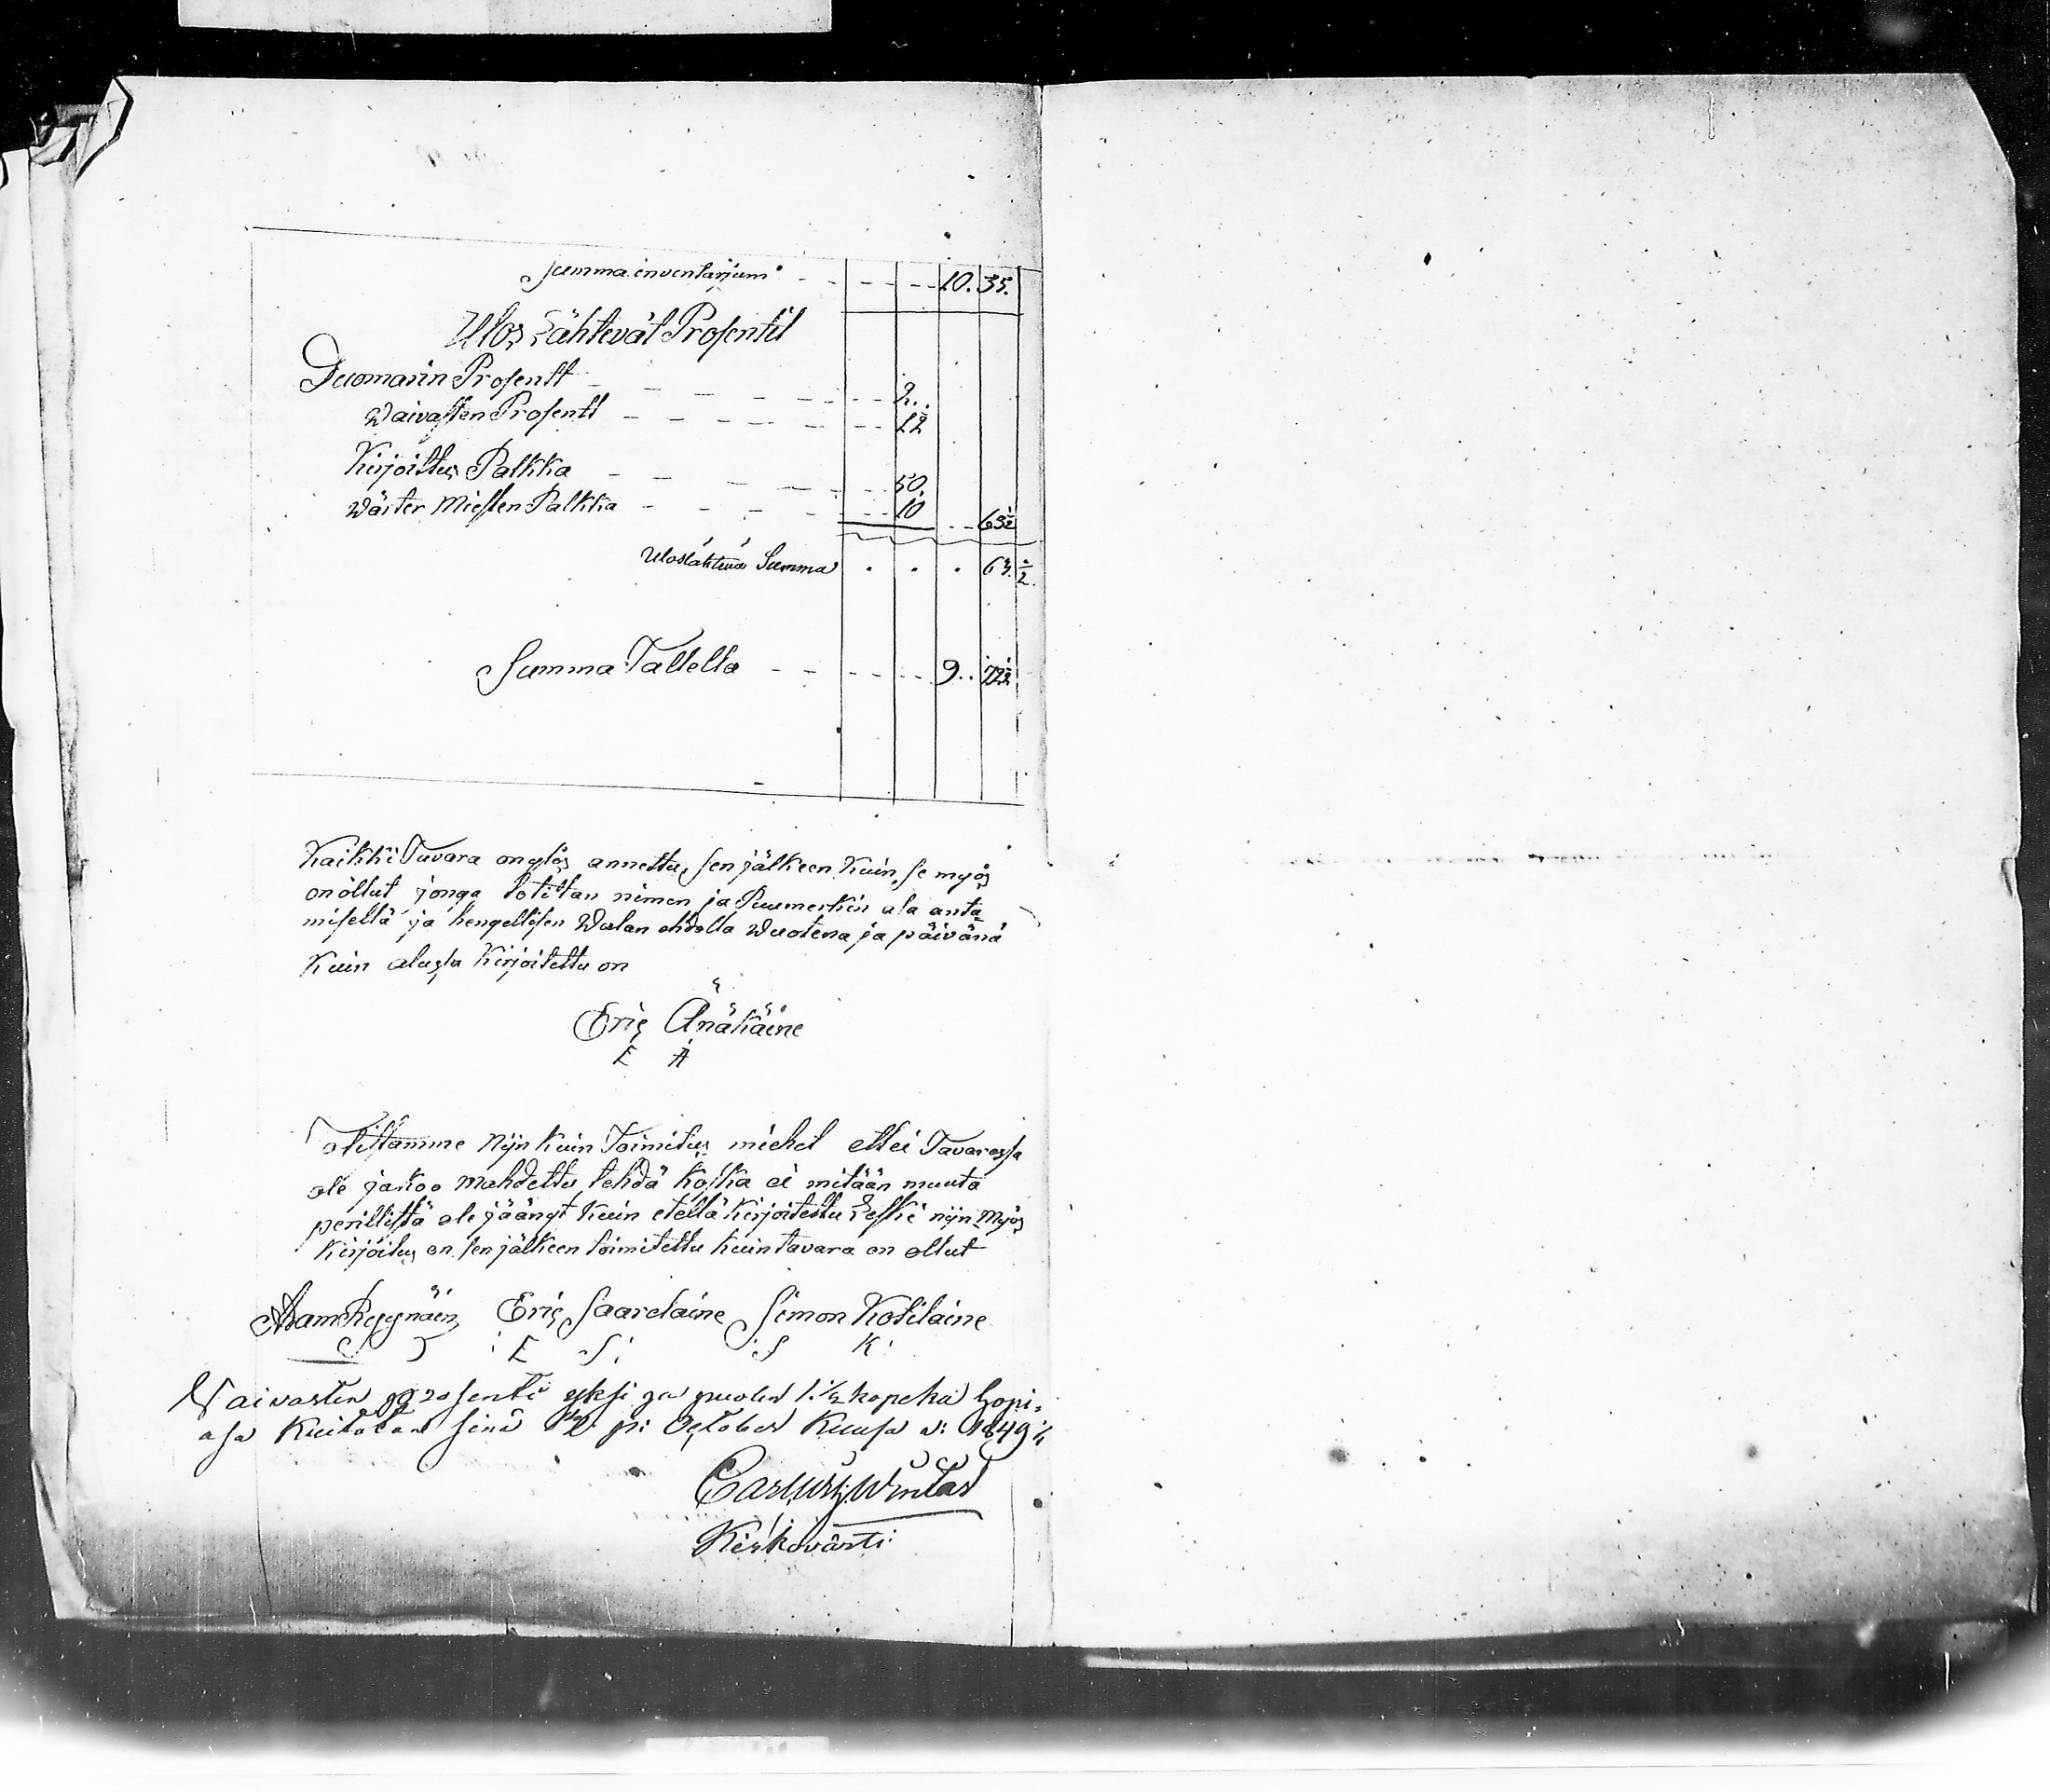 Summa inventarjum 10. 35.
Ulos Lähtevät Prosentit
Duomarin Prosentt 2.
Waivasten Prosentt 1½
Kirjoittus Palkka 50.
Wärter Miesten Palkka 10 63½
Uloslähtevä Summa 63. ½.
Summa Tallella 9. 72½
Kaikki Tavara on ylös annettu, sen jälkeen Kuin se myös
on ollut jonga totitan nimen ja Puumerkin ala anta
misella ja hengellisen Walan ehdolla Wuotena ja päivänä
Kuin alusta Kirjoitettu on
Eric Änäkäine
E Ä
Totistamme Nijn Kuin Toimitus miehet ettei Tavarassa
ole jakoo mahdettu tehdä koska ei mitään muuta
perillistä ole jäängt Kuin etellä Kirjoitettu Leski nijn Myös
Kirjoitus on sen jälkeen toimitettu kuin tavara on ollut
Adam Ryynäin Eric Saarelaine Simon Kotilaine
E S S K
Waivasten prosenti yksi ja puolen 1.½ kopeka hopi=
asa Kuitatan sinä pi October Kuusa v: 1849
Kirkovärti